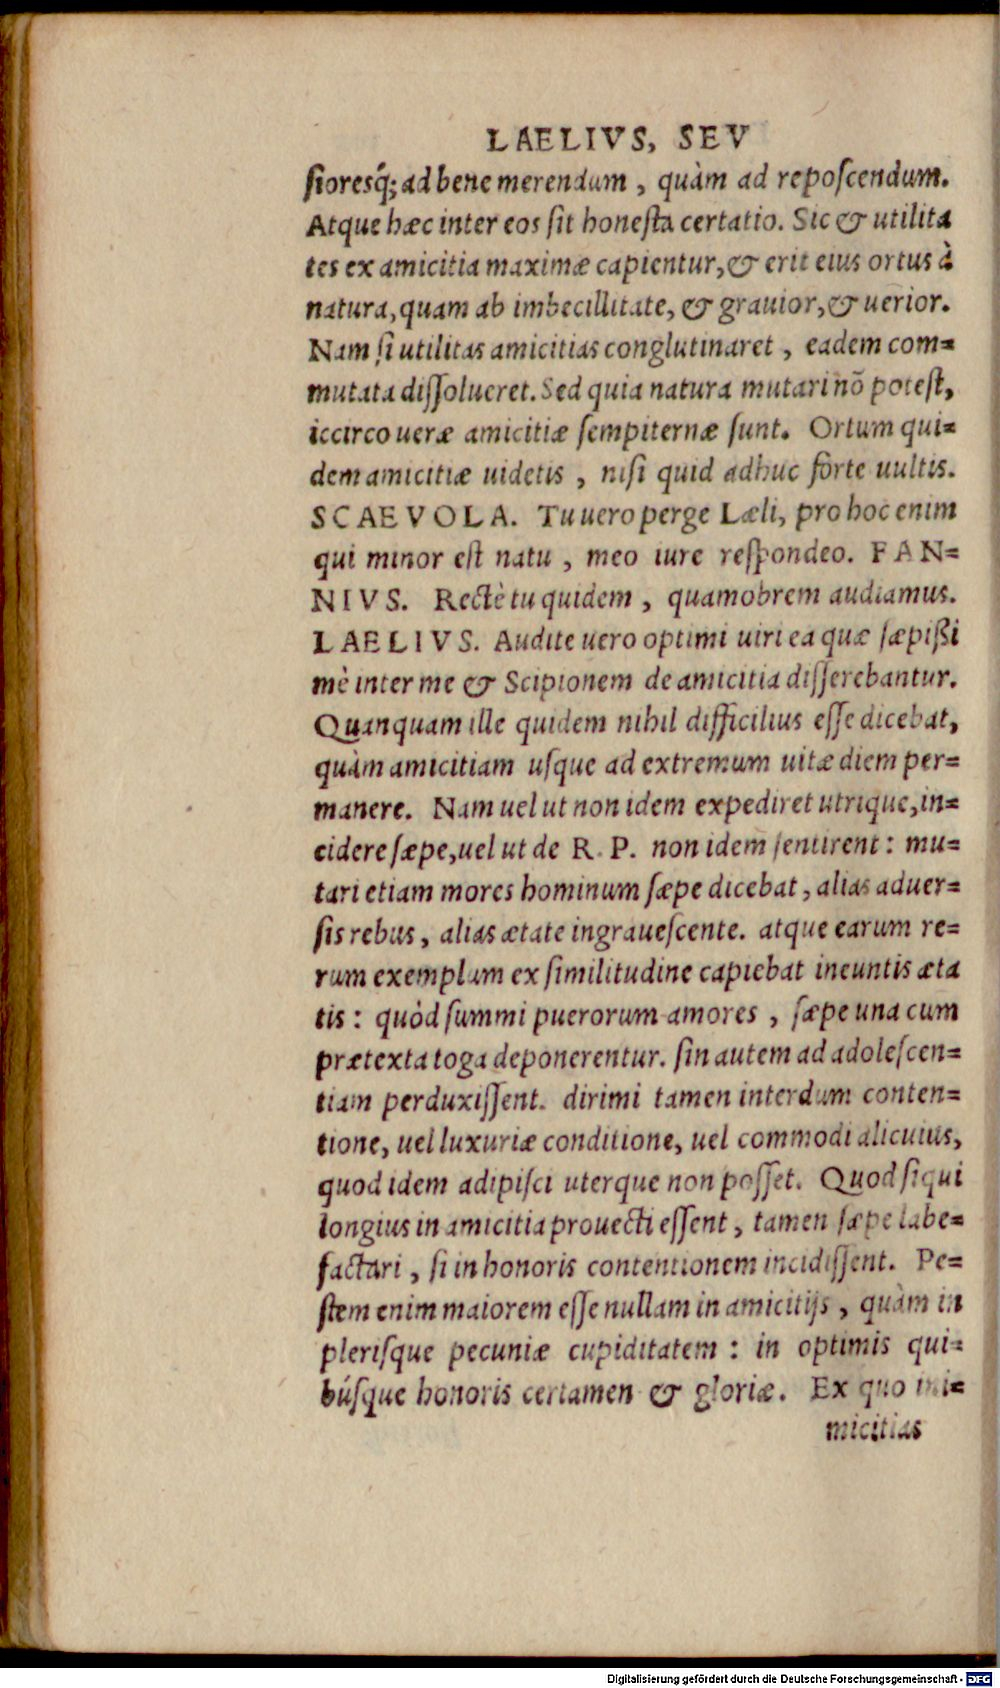 LAELIVS, SEV
ſioresq́; ad bene merendum, quàm ad repoſcendum.
Atque hæc inter eos ſit honeſta certatio. Sic & utilita
tes ex amicitia maximæ capientur, & erit eius ortus à
natura, quam ab imbecillitate, & grauior, & uerior.
Nam ſi utilitas amicitias conglutinaret, eadem com=
mutata diſſolueret. Sed quia natura mutari nõ poteſt,
iccirco ueræ amicitiæ ſempiternæ ſunt. Ortum qui=
dem amicitiæ uidetis, niſi quid adhuc forte uultis.
SCAEVOLA. Tu uero perge Læli, pro hoc enim
qui minor eſt natu, meo iure reſpondeo. FAN=
NIVS. Rectè tu quidem, quamobrem audiamus.
LAELIVS. Audite uero optimi uiri ea quæ ſæpißi
mè inter me & Scipionem de amicitia diſſerebantur.
Quanquam ille quidem nihil difficilius eſſe dicebat,
quàm amicitiam uſque ad extremum uitæ diem per=
manere. Nam uel ut non idem expediret utrique, in=
cidere ſæpe, uel ut de R. P. non idem ſentirent: mu=
tari etiam mores hominum ſæpe dicebat, alias aduer=
ſis rebus, alias ætate ingraueſcente. atque earum re=
rum exemplum ex ſimilitudine capiebat ineuntis æta
tis: quòd ſummi puerorum amores, ſæpe una cum
prætexta toga deponerentur. ſin autem ad adoleſcen=
tiam perduxiſſent. dirimi tamen interdum conten=
tione, uel luxuriæ conditione, uel commodi alicuius,
quod idem adipiſci uterque non poſſet. Quod ſi qui
longius in amicitia prouecti eſſent, tamen ſæpe labe=
factari, ſi in honoris contentionem incidiſſent. Pe=
ſtem enim maiorem eſſe nullam in amicitijs, quàm in
pleriſque pecuniæ cupiditatem: in optimis qui=
búſque honoris certamen & gloriæ. Ex quo ini=
micitias
Digitalisierung gefördert durch die Deutsche Forschungsgemeinschaft - DFG